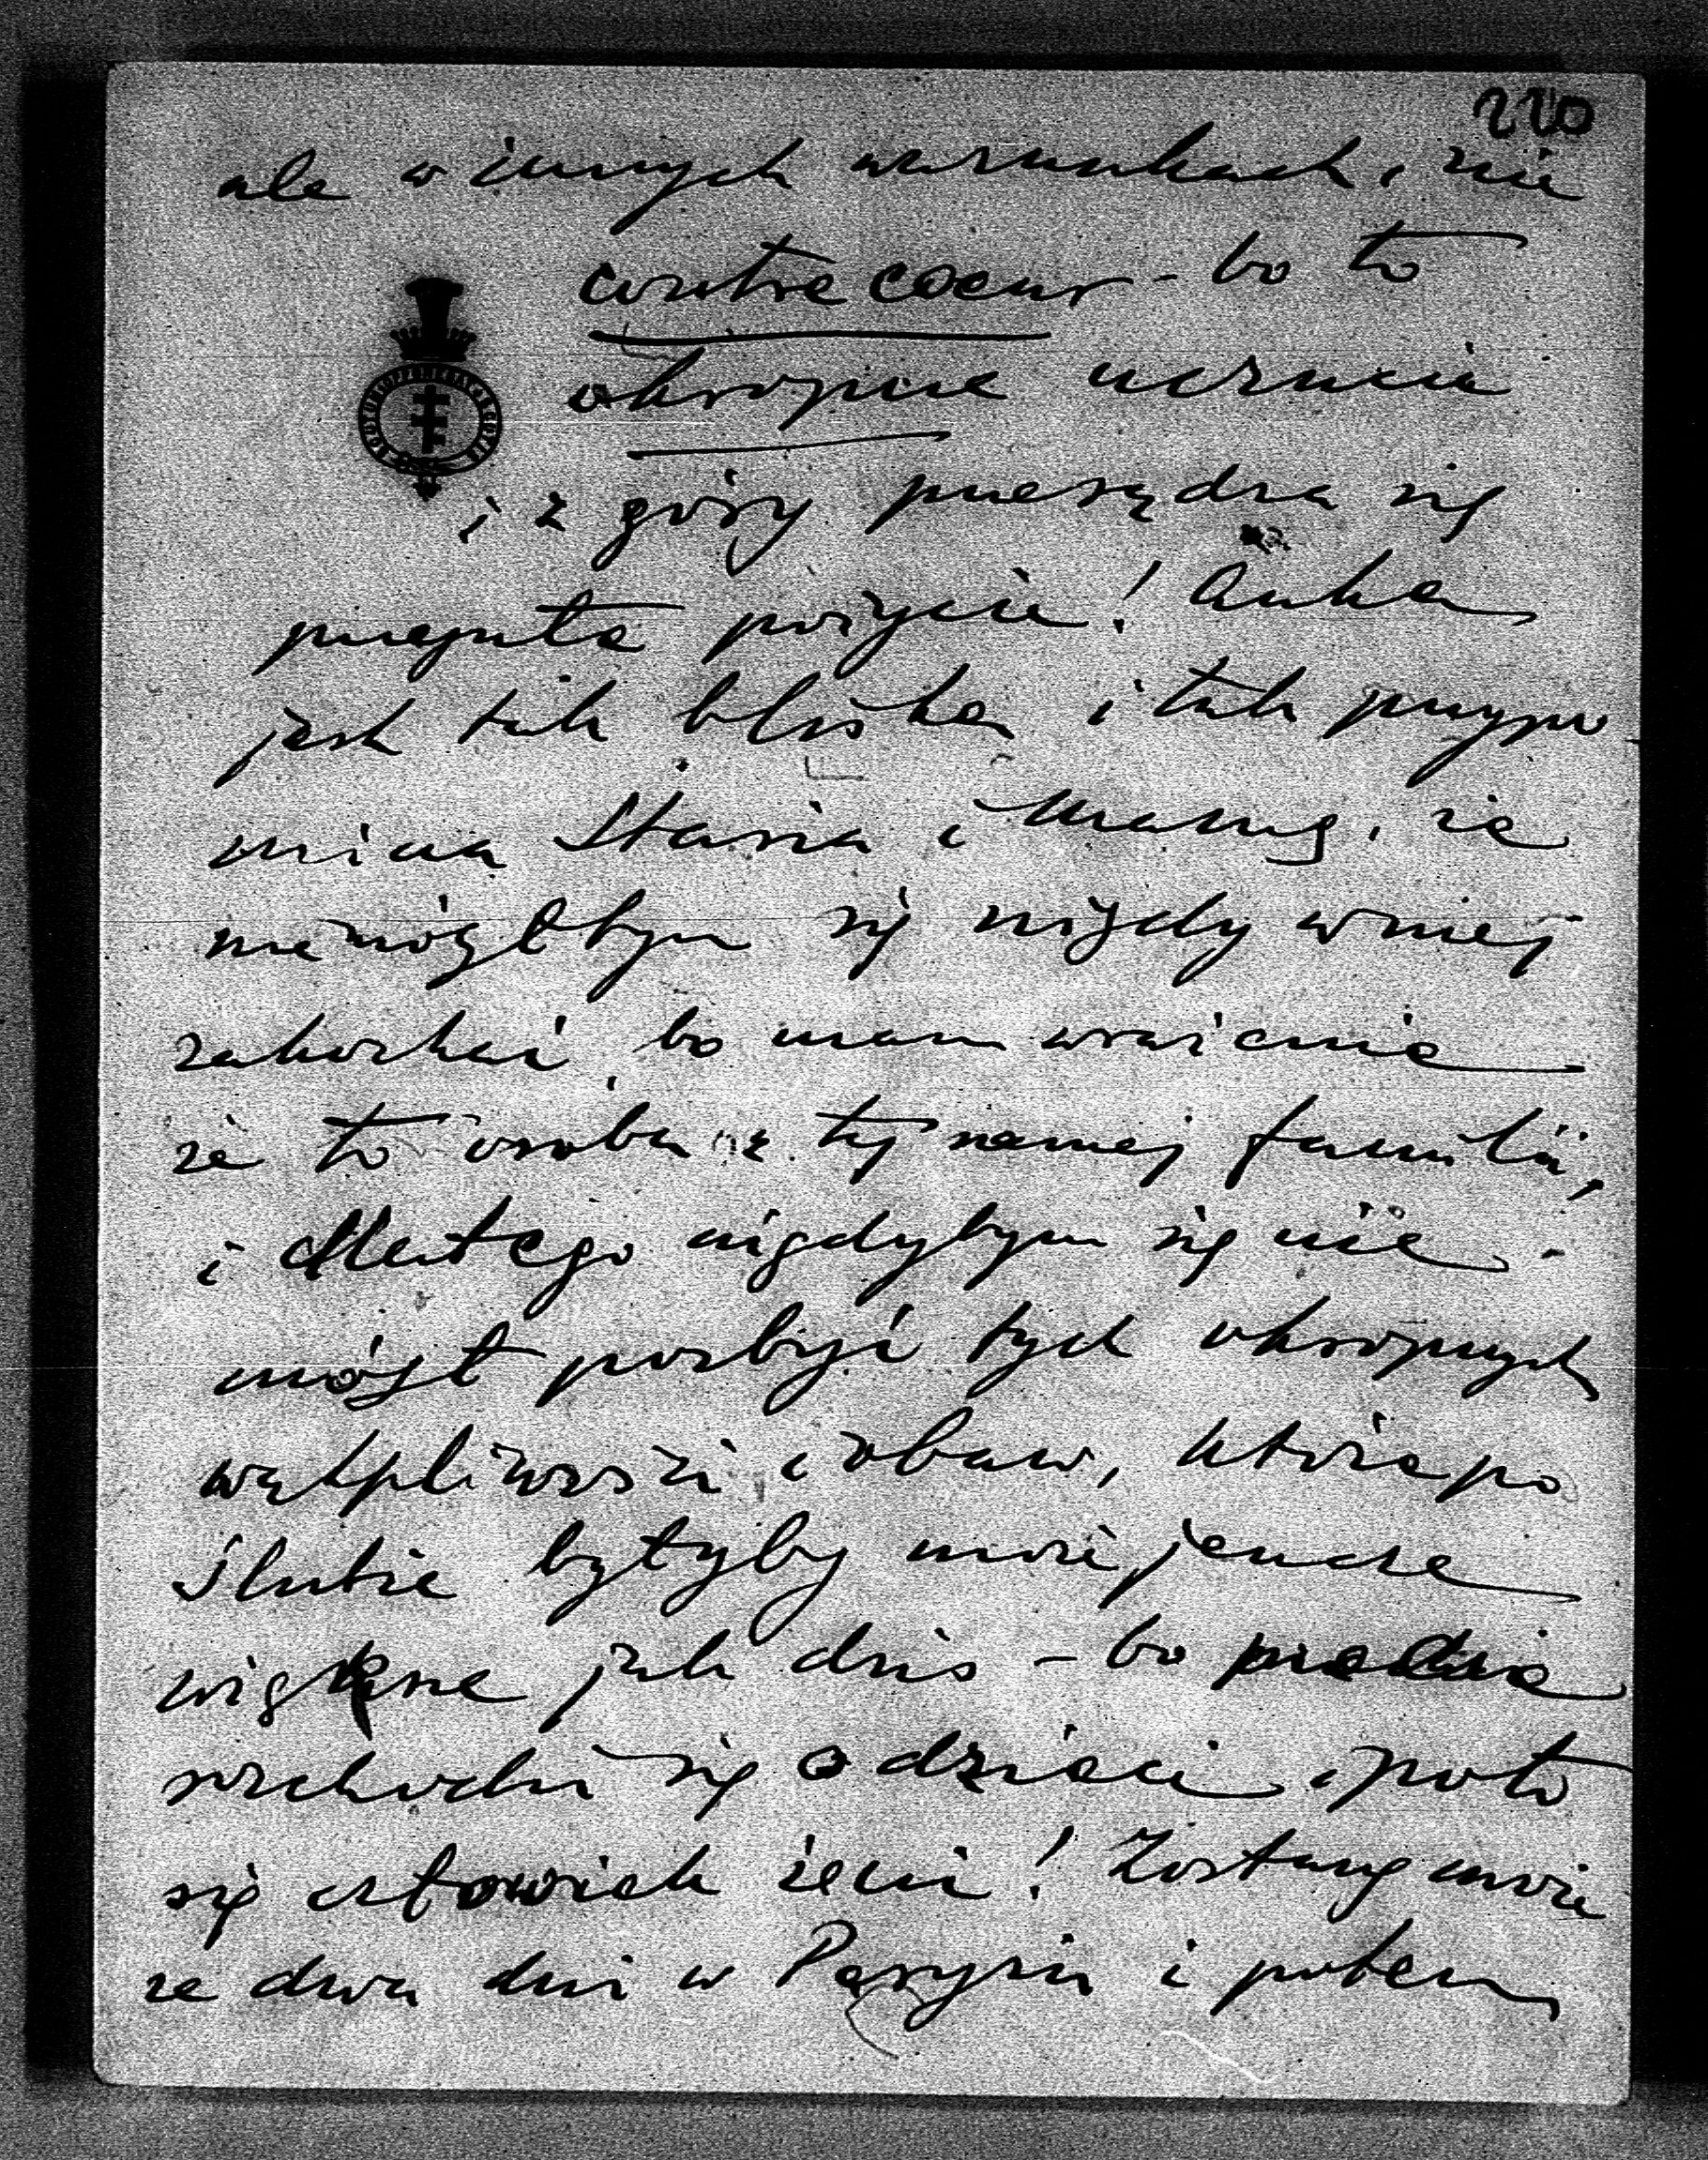 220
ale w innych warunkach, nie
contre coeur - bo to
okropne uczucie
i z góry przesądza się
przepute pożycie! Anka
jest tak bliska i tak przypo-
mina Stasia i Mamę, że
nie mógłbym się nigdy w niej
zakochać, bo mam wrażenie
że to osoba z tej samej familii,
i dlatego nigdybym się nie
mógł pozbyć tych okropnych
wątpliwości i obaw, które po
ślubie byłyby może jeszcze
większe jak dziś - bo przecie
rozchodzi się o dzieci i poto
się człowiek żeni! Zostanę może
ze dwa dni w Paryżu i potem